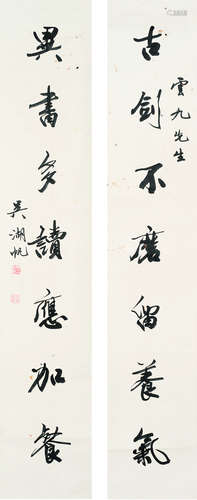 古劍不磨留養氣
雲九先生
異書多讀應加餐
吳湖帆